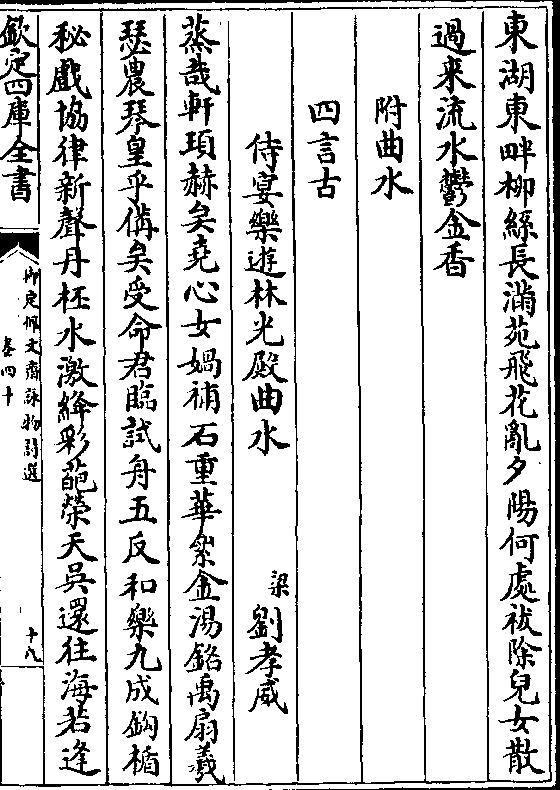 東湖東畔柳絲長滿苑飛花亂夕陽何處祓除兒女散
過来流水鬱金香
附曲水
四言古
侍宴樂遊林光殿曲水 梁劉孝威
蒸哉軒頊赫矣堯心女媧補石重華鋈金湯銘禹扇羲
瑟農琴皇乎偹矣受命君臨試舟五反和樂九成鈎楯
秘戲協律新聲丹杯水激絳彩葩榮天吳還往海若逢
欽定四庫全書
御定佩文齋詠物詩選
卷四十
十八